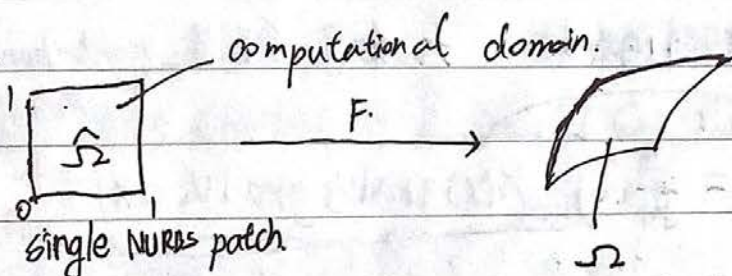 computational domain.
1
Ω̂
F.
0
1
single NURBS patch.
Ω